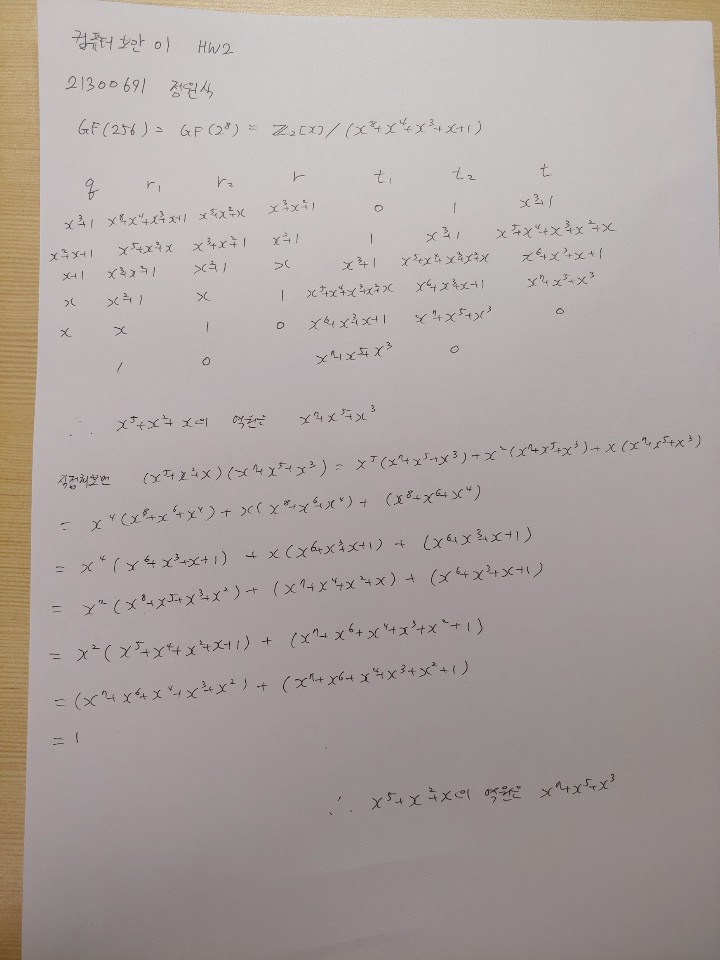 컴퓨터 보안 01 HW2
21300691 정원식
GF(256) = GF(2⁸) = ℤ₂[x] / (x⁸+x⁴+x³+x+1)
q r₁ r₂ r t₁ t₂ t
x³+1 x⁸+x⁴+x³+x+1 x⁵+x²+x x³+x²+1 0 1 x³+1
x²+x+1 x⁵+x²+x x³+x²+1 x²+1 1 x³+1 x⁵+x⁴+x³+x²+x
x+1 x³+x²+1 x²+1 x x³+1 x⁵+x⁴+x³+x²+x x⁶+x³+x+1
x x²+1 x 1 x⁵+x⁴+x³+x²+x x⁶+x³+x+1 x⁷+x⁵+x³
x x 1 0 x⁶+x³+x+1 x⁷+x⁵+x³ 0
1 0 x⁷+x⁵+x³ 0
∴ x⁵+x²+x의 역원은 x⁷+x⁵+x³
직접해보면 (x⁵+x²+x)(x⁷+x⁵+x³) = x⁵(x⁷+x⁵+x³)+x²(x⁷+x⁵+x³)+x(x⁷+x⁵+x³)
= x⁴(x⁸+x⁶+x⁴)+x(x⁸+x⁶+x⁴)+(x⁸+x⁶+x⁴)
= x⁴(x⁶+x³+x+1)+x(x⁶+x³+x+1)+(x⁶+x³+x+1)
= x²(x⁸+x⁵+x³+x²)+(x⁷+x⁴+x²+x)+(x⁶+x³+x+1)
= x²(x⁵+x⁴+x²+x+1)+(x⁷+x⁶+x⁴+x³+x²+1)
= (x⁷+x⁶+x⁴+x³+x²)+(x⁷+x⁶+x⁴+x³+x²+1)
= 1
∴ x⁵+x²+x의 역원은 x⁷+x⁵+x³